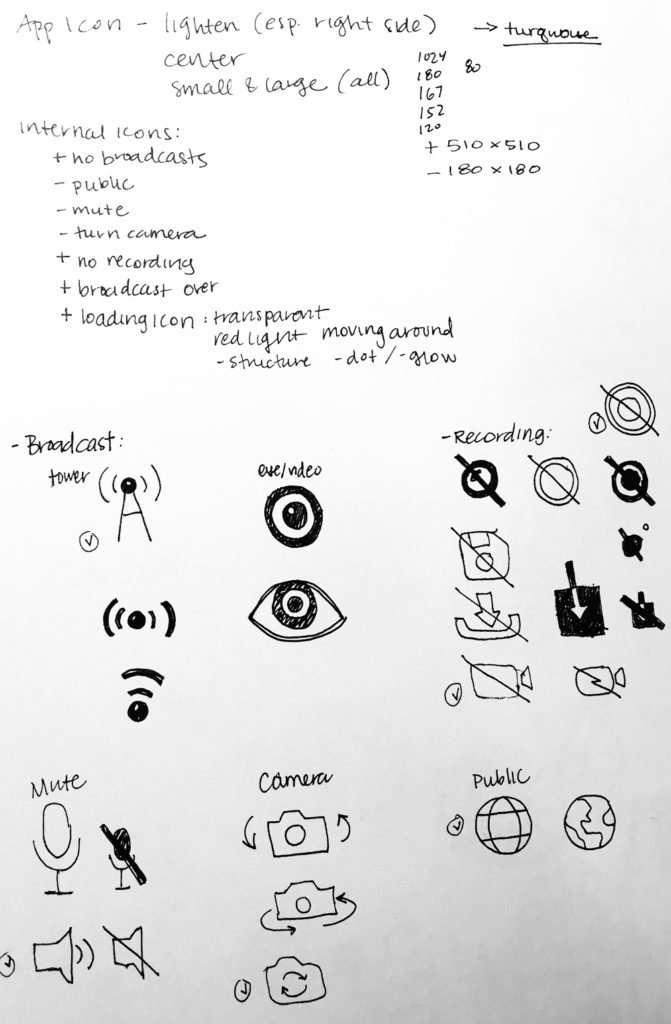 App Icon - lighten (esp. right side) → turquoise
center
small & large (all)
1024
180 80
167
152
120
+ 510 x 510
- 180 x 180
internal icons:
+ no broadcasts
- public
- mute
- turn camera
+ no recording
+ broadcast over
+ loading icon : transparent
red light moving around
- structure - dot / - glow
- Broadcast:
tower
eye/video
- Recording:
Mute
Camera
Public